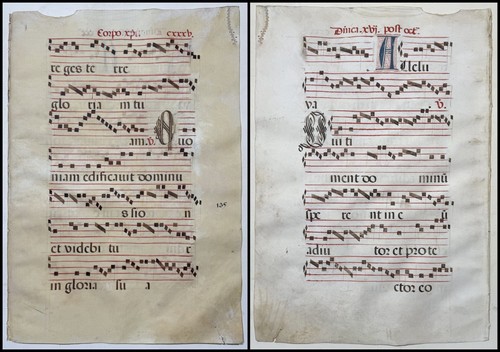 Corpo xp̄i. cxxxv.
re ges te rre
glo ria m tu
am. v. Quo
niam edificavit dominu
s sio n
135
et videbi tu r
in gloria su a
Dn̄ica. xvj. post oct.
Allelu
ya v.
Qui ti
ment do minū
spe re nt in e ū
adiu tor et pro te
ctor eo